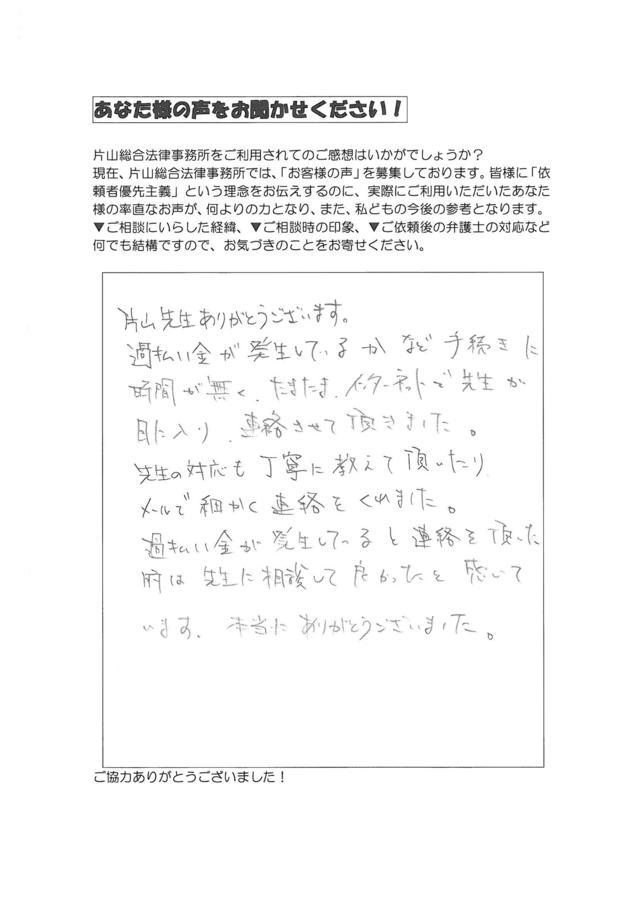 あなた様の声をお聞かせください！
片山総合法律事務所をご利用されてのご感想はいかがでしょうか？
現在、片山総合法律事務所では、「お客様の声」を募集しております。皆様に「依
頼者優先主義」という理念をお伝えするのに、実際にご利用いただいたあなた
様の率直なお声が、何よりの力となり、また、私どもの今後の参考となります。
▼ご相談にいらした経緯、▼ご相談時の印象、▼ご依頼後の弁護士の対応など
何でも結構ですので、お気づきのことをお寄せください。
片山先生ありがとうございます。
過払い金が発生しているかなど手続きに
時間が無く、たまたま、インターネットで先生が
目に入り、連絡させて頂きました。
先生の対応も丁寧に教えて頂いたり
メールで細かく連絡をくれました。
過払い金が発生していると連絡を頂いた
時は先生に相談して良かったと感じて
います。本当にありがとうございました。
ご協力ありがとうございました！